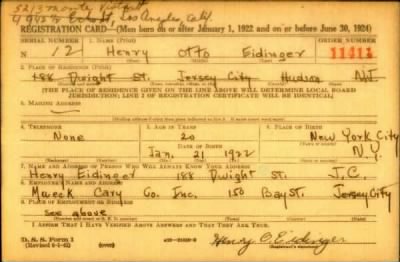 5213 Monte Vista St
Los Angeles, Calif.
REGISTRATION CARD—(Men born on or after January 1, 1922 and on or before June 30, 1924)
SERIAL NUMBER 1. NAME (Print) ORDER NUMBER
N 12 Henry Otto Eidinger
(First) (Middle) (Last)
2. PLACE OF RESIDENCE (Print)
188 Dwight St. Jersey City Hudson N.J.
[THE PLACE OF RESIDENCE GIVEN ON THE LINE ABOVE WILL DETERMINE LOCAL BOARD
JURISDICTION; LINE 2 OF REGISTRATION CERTIFICATE WILL BE IDENTICAL]
3. MAILING ADDRESS
4. TELEPHONE 5. AGE IN YEARS 6. PLACE OF BIRTH
None 20 New York City
DATE OF BIRTH
Jan. 21 1922 N.Y.
7. NAME AND ADDRESS OF PERSON WHO WILL ALWAYS KNOW YOUR ADDRESS
Henry Eidinger 188 Dwight St. J.C.
8. EMPLOYER'S NAME AND ADDRESS
Co. Inc. 150 Bay St. Jersey City
9. PLACE OF EMPLOYMENT OR BUSINESS
See above
I AFFIRM THAT I HAVE VERIFIED ABOVE ANSWERS AND THAT THEY ARE TRUE.
D. S. S. Form 1
(over)
Henry O. Eidinger